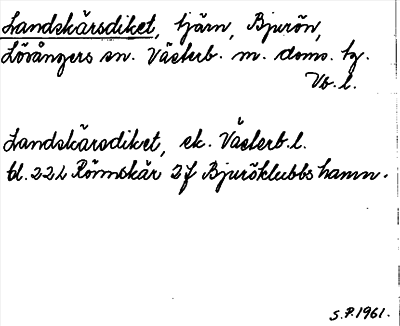 Landskärsdiket, tjärn, Bjurön,
Lövångers sn. Västerb. m. doms. tg.
Vb. l.
Landskärsdiket, ek. Västerb. l.
bl. 22L Rönnskär 2f Bjuröklubbs hamn.
S.P. 1961.